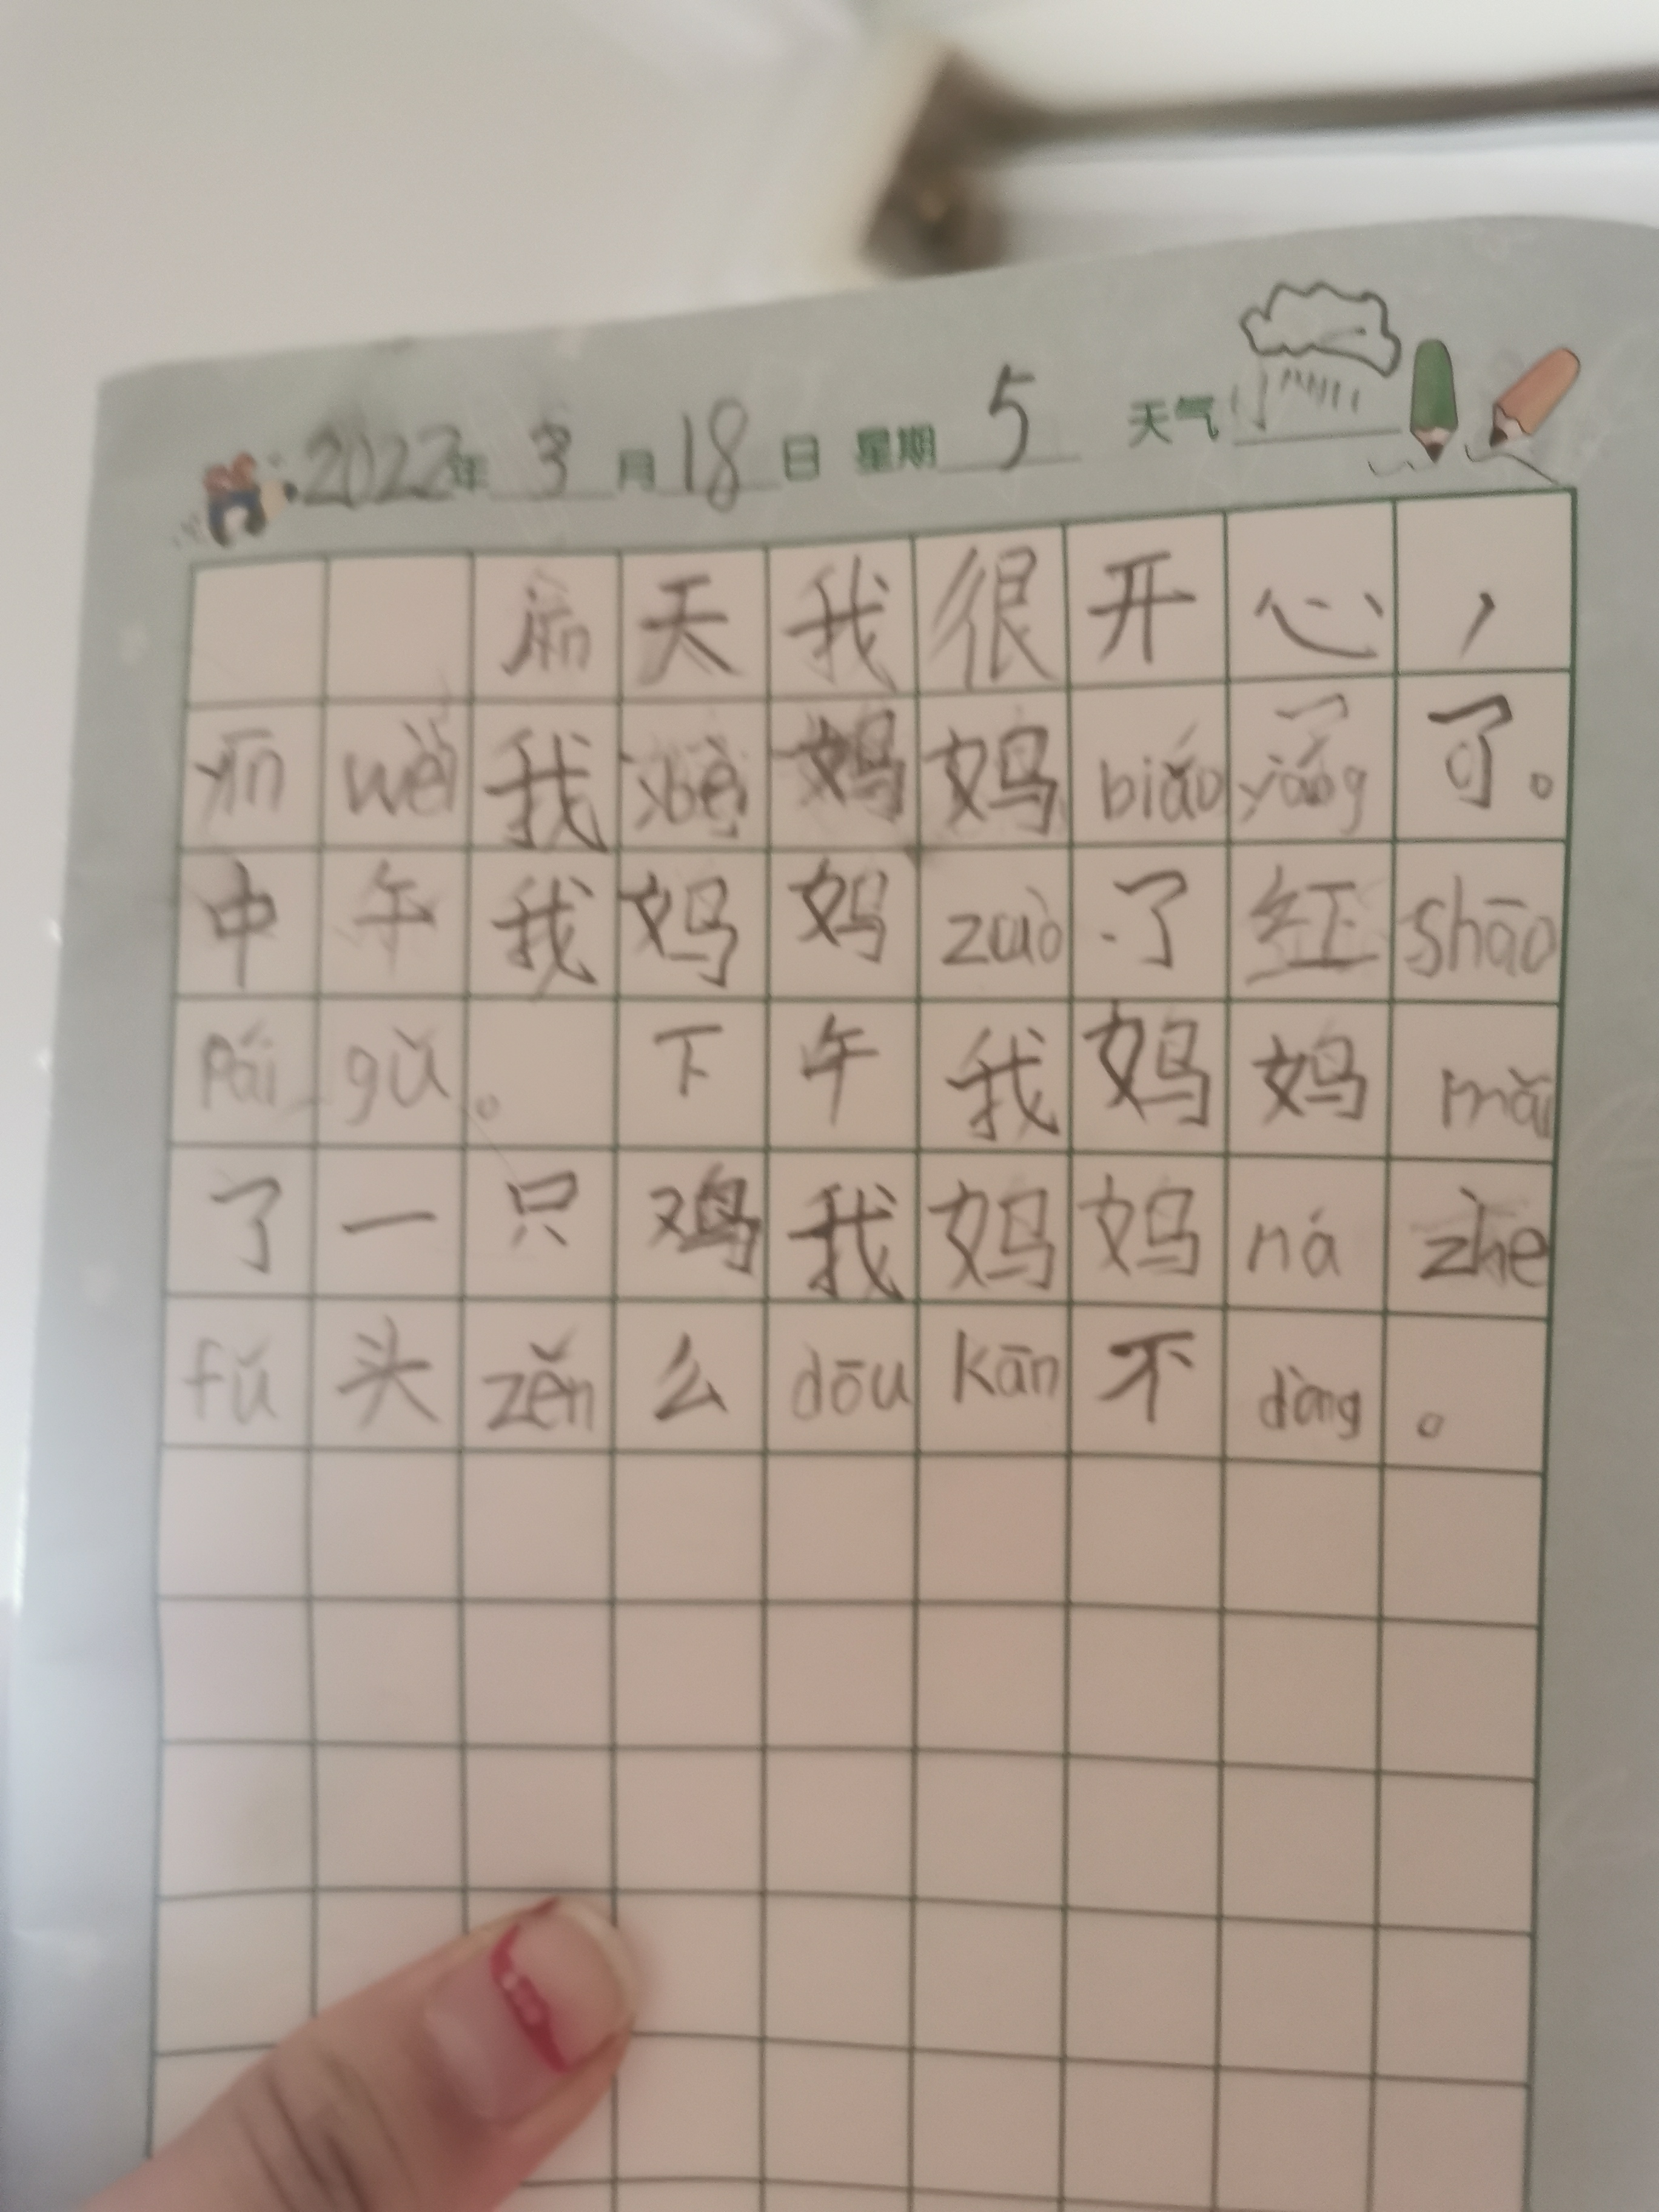 2022年 3月18日 星期5 天气
天我很开心，
yīn wèi 我 妈妈 biǎo yáng 了。
中午我妈妈 zuò 了红 shāo
Pái gǔ。下午我妈妈 mǎi
了一只鸡我妈妈 ná zhe
fǔ 头 zěn 么 dōu kǎn 不 dòng。